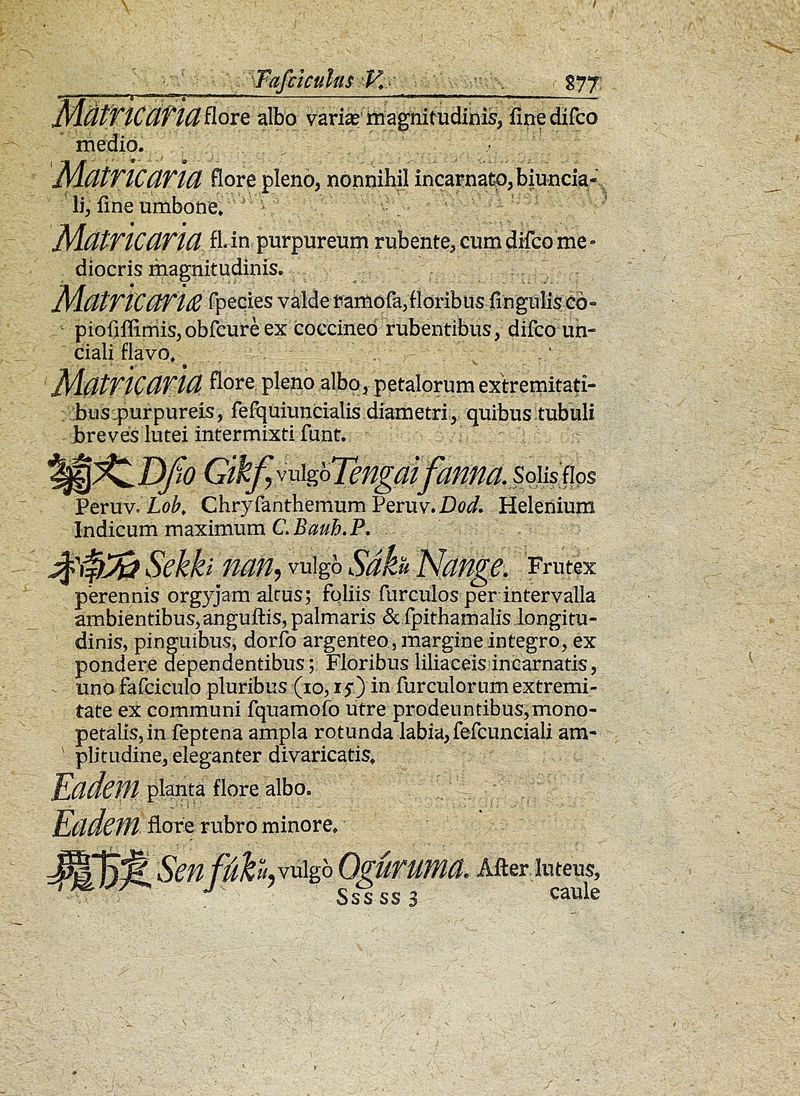 Faſciculus V. 877
Matricaria flore albo variæ magnitudinis, ſine diſco
medio.
Matricaria flore pleno, nonnihil incarnato, biuncia-
li, ſine umbone.
Matricaria fl. in purpureum rubente, cum diſco me-
diocris magnitudinis.
Matricariæ ſpecies valde ramoſa, floribus ſingulis co-
pioſiſſimis, obſcurè ex coccineo rubentibus, diſco un-
ciali flavo.
Matricaria flore pleno albo, petalorum extremitati-
bus purpureis, ſeſquiuncialis diametri, quibus tubuli
breves lutei intermixti ſunt.
Dſio Gikf, vulgò Tengai fanna. Solis flos
Peruv. Lob. Chryſanthemum Peruv. Dod. Helenium
Indicum maximum C. Bauh. P.
Sekki nan, vulgò Sáků Nange. Frutex
perennis orgyjam altus; foliis ſurculos per intervalla
ambientibus, anguſtis, palmaris & ſpithamalis longitu-
dinis, pinguibus, dorſo argenteo, margine integro, ex
pondere dependentibus; Floribus liliaceis incarnatis,
uno faſciculo pluribus (10, 15.) in ſurculorum extremi-
tate ex communi ſquamoſo utre prodeuntibus, mono-
petalis, in ſeptena ampla rotunda labia, ſeſcunciali am-
plitudine, eleganter divaricatis.
Eadem planta flore albo.
Eadem flore rubro minore.
Sen fúků, vulgò Ogúruma. Aſter luteus,
Sss ss 3 caule